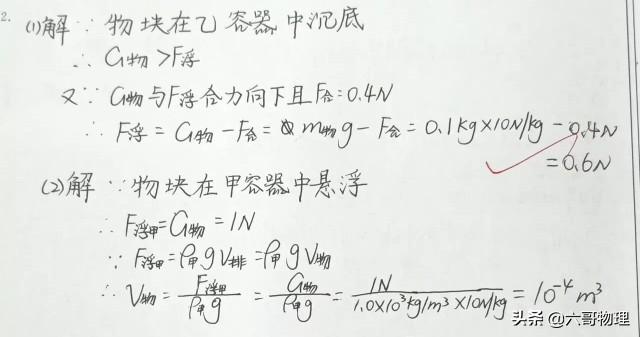 2. (1)解∵物块在乙容器中沉底
∴ G物>F浮
又∵ G物与F浮合力向下且F合=0.4N
∴ F浮=G物-F合=m物g-F合=0.1kg×10N/kg-0.4N
=0.6N
(2)解∵物块在甲容器中悬浮
∴ F浮甲=G物=1N
∵ F浮甲=ρ甲gV排=ρ甲gV物
∴ V物=F浮甲/ρ甲g=G物/ρ甲g=1N/1.0×10³kg/m³×10N/kg=10⁻⁴m³
头条@六哥物理